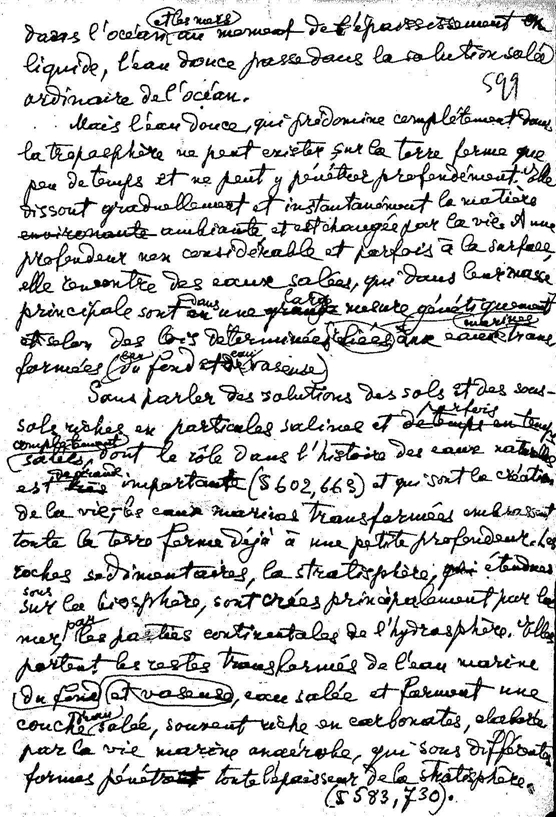 et les mers
dans l'océan au moment de l'épaississement en
liquide, l'eau douce passe dans la solution salée
599
ordinaire de l'océan.
Mais l'eau douce, qui prédomine complètement dans
la troposphère ne peut exister sur la terre ferme que
peu de temps et ne peut y pénétrer profondément. Elle
dissout graduellement et instantanément la matière
environante ambiante et est changée par la vie. A une
profondeur non considérable et parfois à la surface,
elle rencontre des eaux salées, qui dans leur masse
principale sont dans une large mesure génétiquement
et selon des lois déterminées liées aux eaux marines trans
formées (eau du fond et eau vaseuse)
Sans parler des solutions des sols et des sous-
sols riches en particules salines et parfois
complètement
salées, dont le rôle dans l'histoire des eaux naturelles
est de grande importante (§ 602, 668) et qui sont la création
de la vie, les eaux marines transformées embrassent
toute la terre ferme déjà à une petite profondeur. Les
roches sédimentaires, la stratisphère, étendues
sous la biosphère, sont crées principalement par la
mer, par les parties continentales de l'hydrosphère. Elles
portent les restes transformés de l'eau marine
du fond et vaseuse, eau salée et forment une
couche d'eau salée, souvent riche en carbonates, élaborée
par la vie marine anaérobe, qui sous différentes
formes pénètre toute l'épaisseur de la stratisphère.
(§ 583, 730).